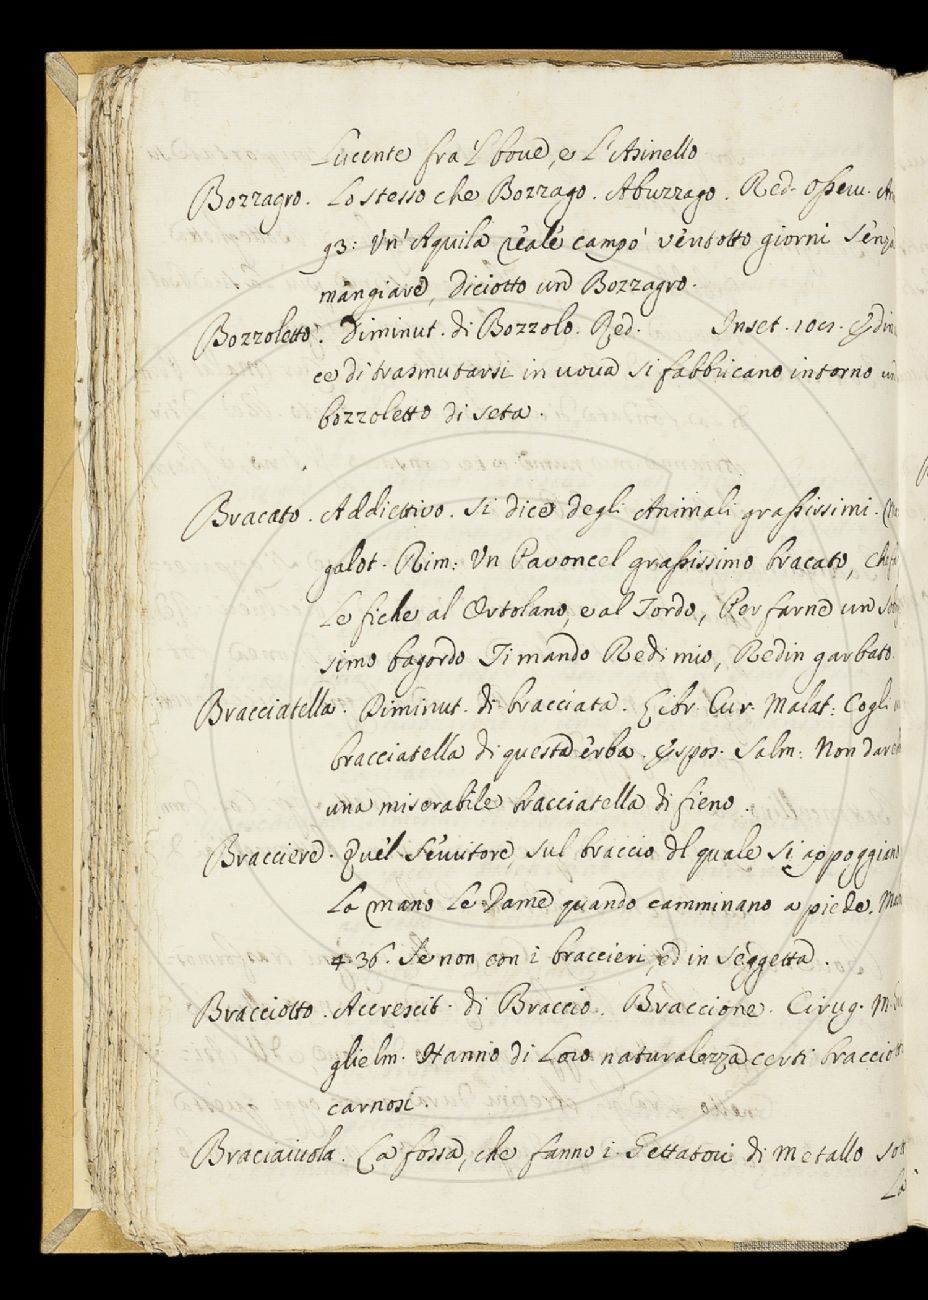 Lucente fra 'l boue, e L'Asinello
Bozzagro. Lo stesso che Bozzago. Abuzzago. Red. Osseru. An
93: Vn' Aquila reale campò ventotto giorni senza
mangiare, diciotto un Bozzagro.
Bozzoletto. Diminut. di Bozzolo. Red. Inset.
ce di trasmutarsi in uoua si fabbricano intorno un
bozzoletto di seta.
Bracato. Addiettivo. Si dice degli Animali grassissimi. Ma
galot. Rim: Vn Pavoncel grassissimo bracato, che fa
Le fiche al Ortolano, e al Tordo, Per farne un
simo bagordo Ti mando Redi mio, Redin garbato.
Bracciatella. Diminut. di bracciata. Libr. Cur. Malat: Cogli
bracciatella di questa erba. Espos. Salm: Non
una miserabile bracciatella di fieno.
Bracciere. Quel Seruitore, sul braccio del quale si appoggiano
La mano Le Dame quando camminano a piede.
436. Se non con i braccieri, ed in seggetta.
Bracciotto. Accrescit. di Braccio. Braccione. Cirug. M.
glielm. Hanno di Loro naturalezza certi bracciotti
carnosi.
Braciaiuola. La fossa, che fanno i Gettatori di metallo sott
La